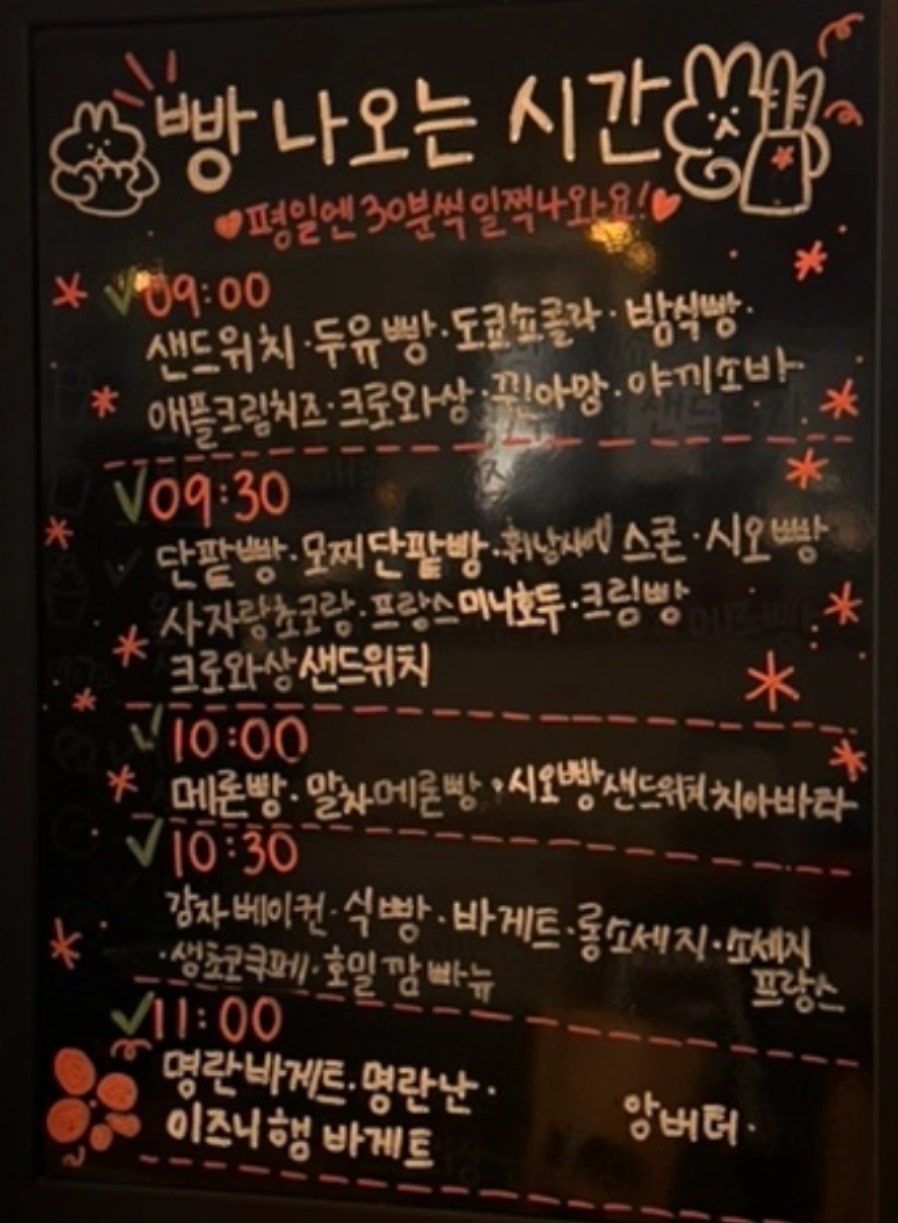 빵 나오는 시간
♥평일엔 30분씩 일찍나와요!♥
✓09:00
샌드위치·두유빵·도쿄쇼콜라·밤식빵·
애플크림치즈·크로와상··야끼소바·
✓09:30
단팥빵·모찌단팥빵·스콘·시오빵
사자랑초코랑·프랑스미니호두·크림빵
크로와상샌드위치
✓10:00
메론빵·말차메론빵·시오빵샌드위치 치아바타
✓10:30
감자베이컨·식빵·바게트·롱소세지·소세지
프랑스
·생초코쿠페·호밀깜빠뉴
✓11:00
명란바게트·명란난·
앙버터·
이즈니햄 바게트